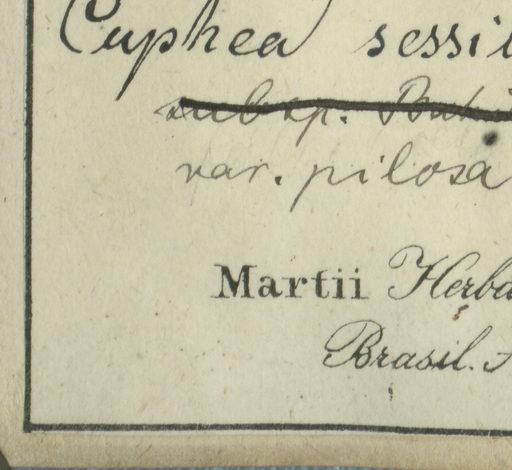 Cuphea sessil
subsp. Bahi
var. pilosa
Martii Herba
Brasil.